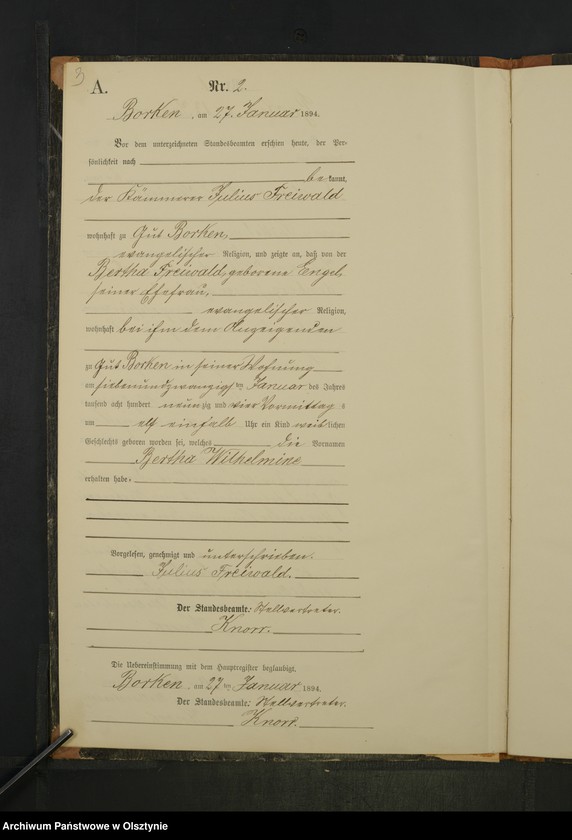 3
A.
Nr. 2.
Borken, am 27. Januar 1894.
Vor dem unterzeichneten Standesbeamten erschien heute, der Per-
sönlichkeit nach
be kannt,
der Kämmerer Julius Freiwald
wohnhaft zu Gut Borken,
evangelischer Religion, und zeigte an, daß von der
Bertha Freiwald, geborene Engel,
seiner Ehefrau,
evangelischer Religion,
wohnhaft bei ihm dem Anzeigenden
zu Gut Borken in seiner Wohnung
am siebenundzwanzigsten Januar des Jahres
tausend acht hundert neunzig und vier Vormittags
um elf einhalb Uhr ein Kind weiblichen
Geschlechts geboren worden sei, welches die Vornamen
Bertha Wilhelmine
erhalten habe.
Vorgelesen, genehmigt und unterschrieben.
Julius Freiwald.
Der Standesbeamte. Stellvertreter.
Knorr.
Die Uebereinstimmung mit dem Hauptregister beglaubigt.
Borken, am 27 ten Januar 1894.
Der Standesbeamte. Stellvertreter.
Knorr.
Archiwum Państwowe w Olsztynie